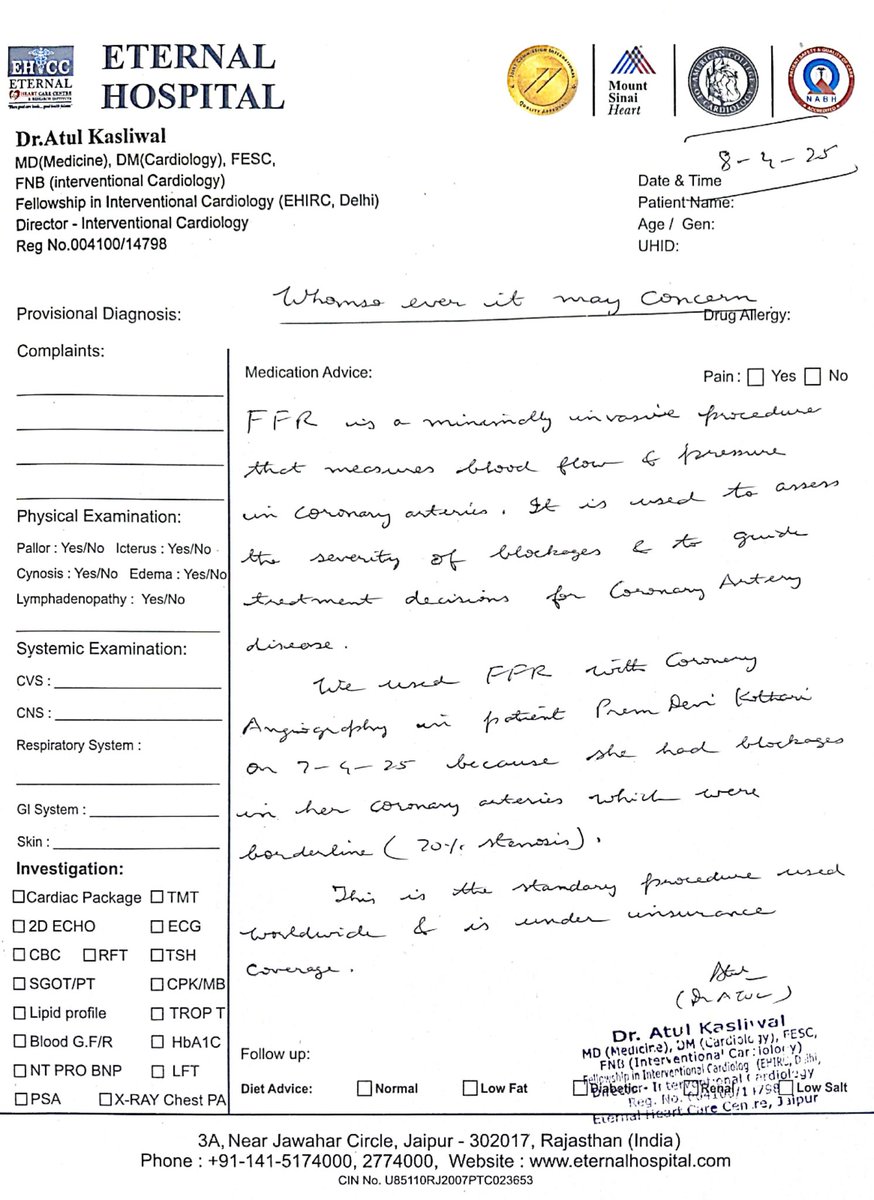 EHCC
ETERNAL
HEART CARE CENTRE
& RESEARCH INSTITUTE
ETERNAL
HOSPITAL
JOINT COMMISSION INTERNATIONAL
QUALITY APPROVAL
Mount
Sinai
Heart
AMERICAN COLLEGE OF CARDIOLOGY
NABH
ACCREDITED
Dr.Atul Kasliwal
MD(Medicine), DM(Cardiology), FESC,
FNB (interventional Cardiology)
Fellowship in Interventional Cardiology (EHIRC, Delhi)
Director - Interventional Cardiology
Reg No.004100/14798
Date & Time 8-4-25
Patient Name:
Age / Gen:
UHID:
Whomso ever it may concern
Provisional Diagnosis:
Drug Allergy:
Complaints:
Medication Advice:
Pain : Yes No
FFR is a minimally invasive procedure
that measures blood flow & pressure
in coronary arteries. It is used to assess
the severity of blockages & to guide
treatment decisions for Coronary Artery
disease.
We used FFR with Coronary
Angiography in patient Prem Devi Kothari
on 7-4-25 because she had blockages
in her coronary arteries which were
borderline (70% stenosis).
This is the standary procedure used
worldwide & is under insurance
coverage.
(Dr ATUL)
Dr. Atul Kasliwal
MD (Medicine), DM (Cardiology), FESC,
FNB (Interventional Cardiology)
Fellowship in Interventional Cardiolog (EHIRC, Delhi,
Director - Interventional Cardiology
Reg. No. 004100/14798
Eternal Heart Care Centre, Jaipur
Physical Examination:
Pallor : Yes/No Icterus : Yes/No
Cynosis : Yes/No Edema : Yes/No
Lymphadenopathy : Yes/No
Systemic Examination:
CVS :
CNS :
Respiratory System :
GI System :
Skin :
Investigation:
Cardiac Package TMT
2D ECHO ECG
CBC RFT TSH
SGOT/PT CPK/MB
Lipid profile TROP T
Blood G.F/R HbA1C
NT PRO BNP LFT
PSA X-RAY Chest PA
Follow up:
Diet Advice: Normal Low Fat Diabetic Renal Low Salt
3A, Near Jawahar Circle, Jaipur - 302017, Rajasthan (India)
Phone : +91-141-5174000, 2774000, Website : www.eternalhospital.com
CIN No. U85110RJ2007PTC023653